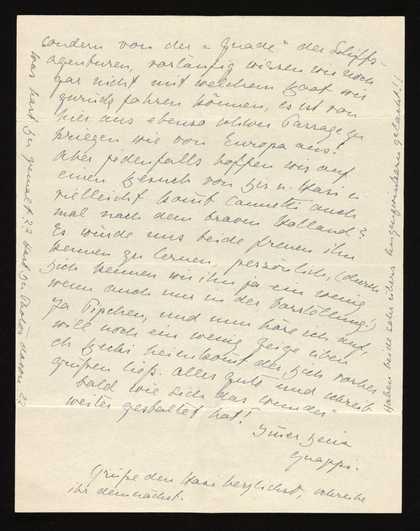 sondern von der "Gnade" der Schiffs-
agenturen, vorläufig wissen wir noch
gar nicht mit welchem Boot wir
zurück fahren können, es ist von
hier aus ebenso schwer Passage zu
kriegen wie von Europa aus!
Aber jedenfalls hoffen wir auf
einen Besuch von Dir u.
vielleicht kommt Canetti auch
mal nach dem braven Holland?
Es würde uns beide freuen ihn
kennen zu lernen, persönlich, (durch
Dich kennen wir ihn ja ein wenig
wenn auch nur in der Vorstellung!)
Ja Pipchen, und nun höre ich auf,
will noch ein wenig Geige üben
eh heimkommt der Dich vorher
grüßen ließ. Alles Gute und schreib
bald wie sich das "Wunder"
weiter gestaltet hat!
Quappi.
Grüße den herzlichst, schreibe
ihr demnächst.
Was hast Du gemalt?? Hast Du
Haben beide sehr über gelacht!!